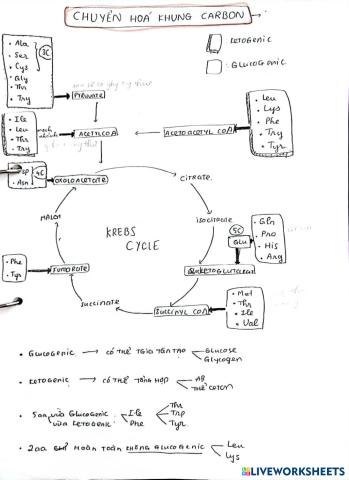 CHUYỂN HOÁ KHUNG CARBON
KETOGENIC
GLUCOGENIC
• Ala
• Ser
• Cys
• Gly
• Thr
• Try
3C
PYRUVATE
• Ile
• Leu
• Thr
• Try
ACETYLCOA
ACETOACETYL COA
• Leu
• Lys
• Phe
• Try
• Tyr
• Asn
4C
OXOLOACETATE
CITRATE
ISOCITRATE
MALAT
KREBS
CYCLE
5C
Glu
• Gln
• Pro
• His
• Arg
• Phe
• Tyr
FUMORATE
SUCCINATE
SUCCINYL COA
• Met
• Thr
• Ile
• Val
• GLUCOGENIC → CÓ THỂ TGIA TÂN TẠO
Glucose
Glycogen
• KETOGENIC → CÓ THỂ TỔNG HỢP
AB
THỂ CETON
• 5aa VỪA GLUCOGENIC
VỪA KETOGENIC
Ile
Phe
Thr
Trp
Tyr
• 2aa HOÀN TOÀN KHÔNG GLUCOGENIC
Leu
Lys
LIVEWORKSHEETS